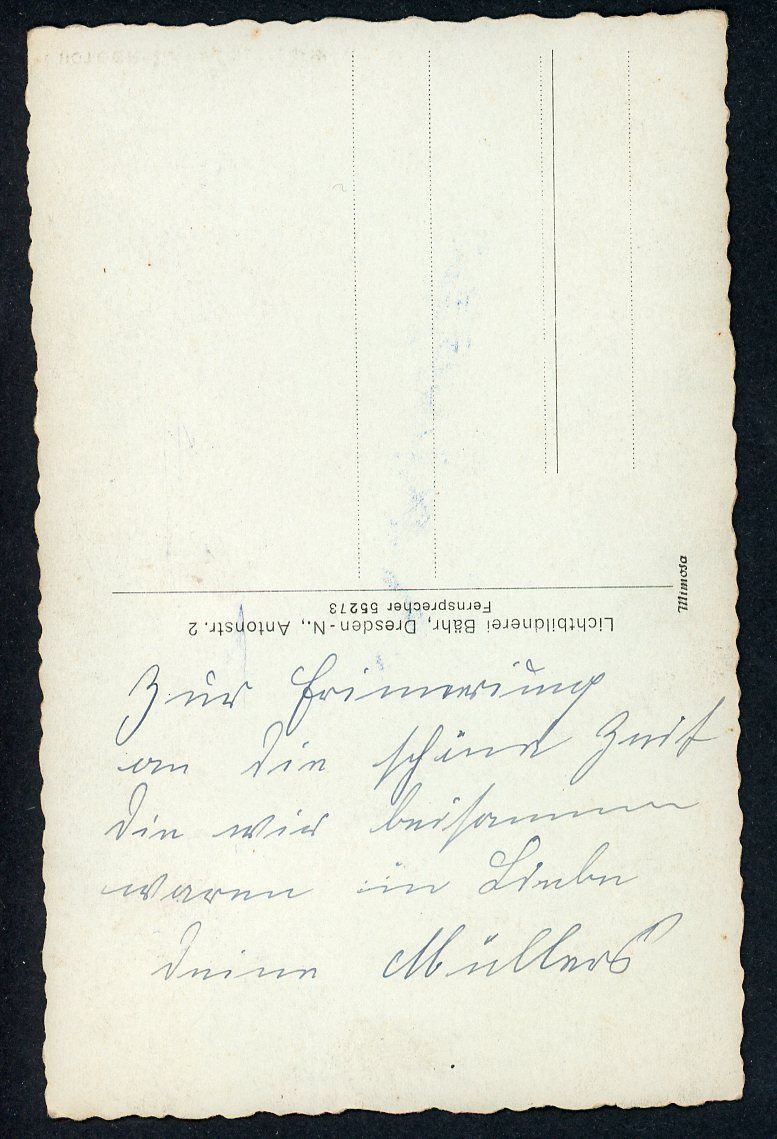 Mimosa
Fernsprecher 55273
Lichtbildnerei Bähr, Dresden-N., Antonstr. 2
Zur Erinnerung
an die schöne Zeit
die wir beisammen
waren in Liebe
deine Müllers